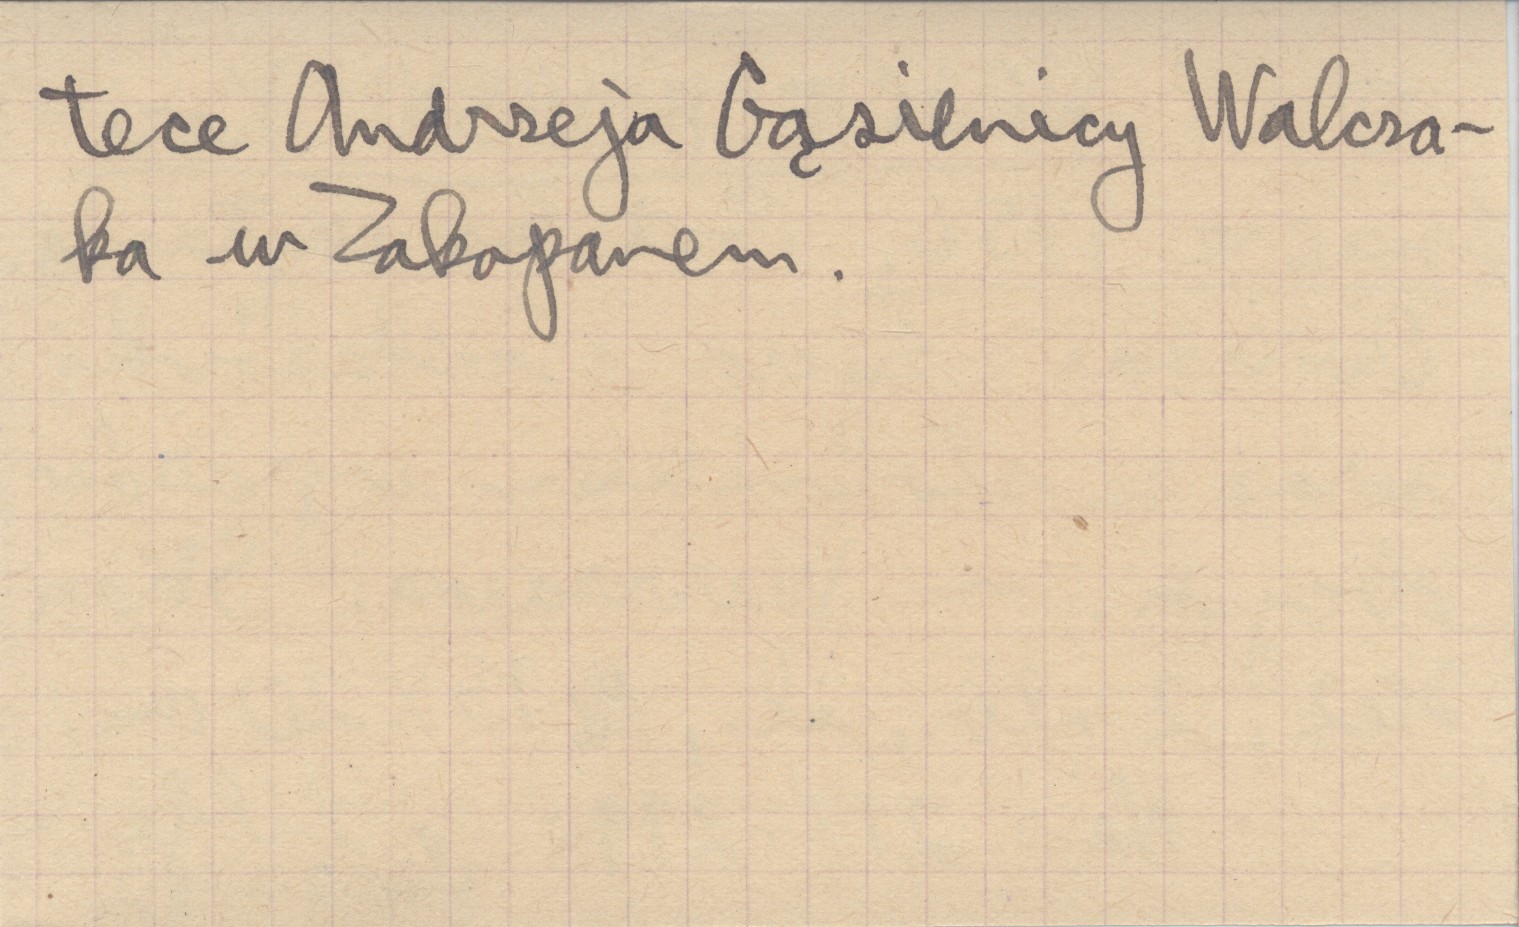 tece Andrzeja Gąsienicy Walcza-
ka w Zakopanem.